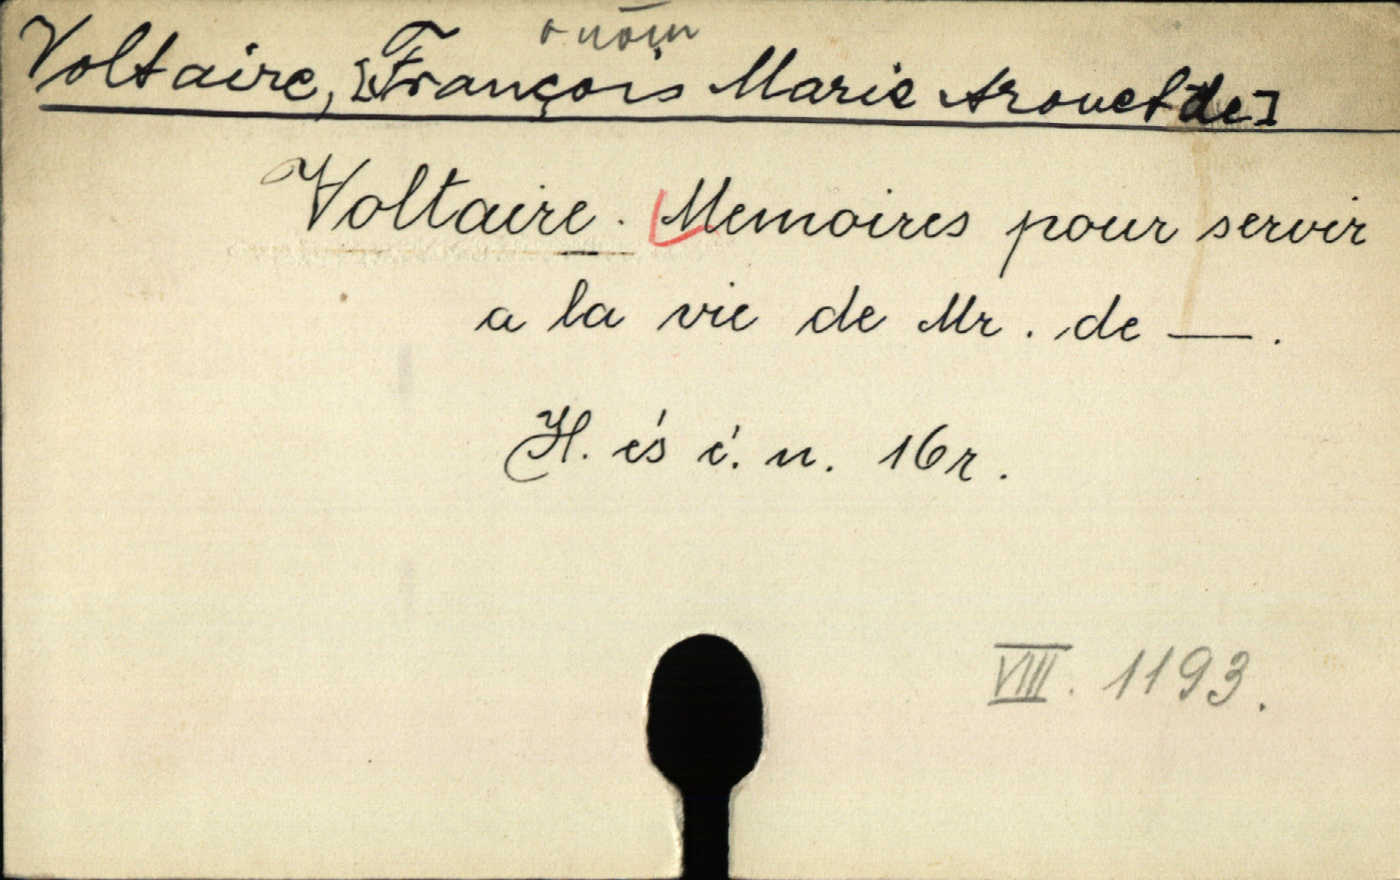 Voltaire, [François Marie Arouet de]
Voltaire. Memoires pour servir
a la vie de Mr. de —.
H. és é. n. 16r.
VIII. 1193.